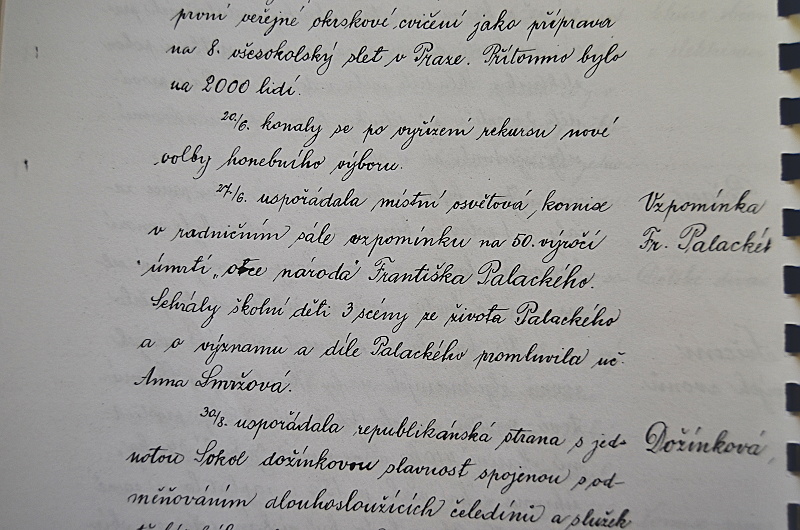 první veřejné okrskové cvičení jako příprava
na 8. všesokolský slet v Praze. Přítomno bylo
na 2000 lidí.
20/6. konaly se po vyřízení rekursu nové
volby honebního výboru.
27/6. uspořádala místní osvětová komise
v radničním sále vzpomínku na 50. výročí
úmrtí „otce národa" Františka Palackého.
Sehrály školní děti 3 scény ze života Palackého
a o významu a díle Palackého promluvila uč.
Anna Smržová.
30/8. uspořádala republikánská strana s jed-
notou Sokol dožínkovou slavnost spojenou s od-
měňováním dlouhosloužících čeledínů a služek
Vzpomínka
Fr. Palackéh
Dožínková